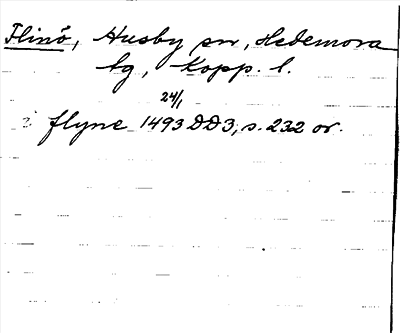 Flinö, Husby sn, Hedemora
tg, Kopp. l.
24/1
i flyne 1493 DD3, s. 232 or.